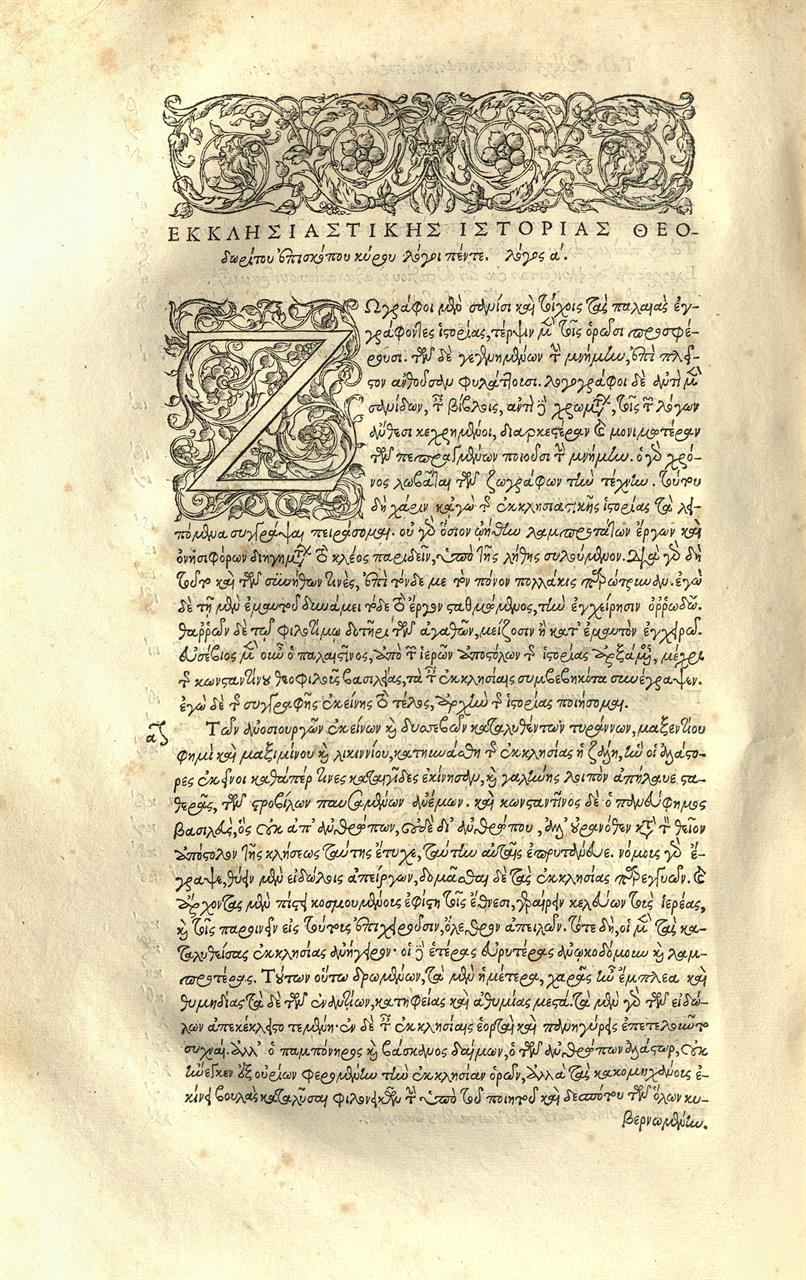 ΕΚΚΛΗΣΙΑΣΤΙΚΗΣ ΙΣΤΟΡΙΑΣ ΘΕΟ-
δωρίτου ἐπισκόπου κύρου λόγοι πέντε. λόγος α΄.
ΖΩγράφοι μὲν σανίσι καὶ τοίχοις τὰς παλαιὰς ἐγ-
γράφοντες ἱστορίας, τέρψιν μὲν τοῖς ὁρῶσι προσφέ-
ρουσι. τῶν δὲ γεγενημένων τὴν μνήμην, ἐπὶ πλεῖ-
στον ἀνθοῦσαν φυλάττουσι. λογογράφοι δὲ ἀντὶ μὲν
σανίδων, τοῖς βίβλοις, ἀντὶ δὲ χρωμάτων, τοῖς τῶν λόγων
ἄνθεσι κεχρημένοι, διαρκεστέραν καὶ μονιμωτέραν
τῶν πεπραγμένων ποιοῦσι τὴν μνήμην. ὁ γὰρ χρό-
νος λωβᾶται τῶν ζωγράφων τὴν τέχνην. τούτου
δὴ χάριν κἀγὼ τῆς ἐκκλησιαστικῆς ἱστορίας τὰ λει-
πόμενα συγγράψαι πειράσομαι. οὐ γὰρ ὅσιον ᾠήθην λαμπροτάτων ἔργων καὶ
ὀνησιφόρων διηγημάτων τὸ κλέος παριδεῖν, ὑπὸ τῆς λήθης συλούμενον. διὰ γὰρ δὴ
τοῦτο καὶ τῶν συνήθων τινὲς, ἐπὶ τόνδε με τὸν πόνον πολλάκις παρώτρυναν. ἐγὼ
δὲ τῇ μὲν ἐμαυτοῦ δυνάμει τόδε τὸ ἔργον σταθμώμενος, τὴν ἐγχείρησιν ὀῤῥωδῶ.
θαῤῥῶν δὲ τῷ φιλοτίμῳ δοτῆρι τῶν ἀγαθῶν, μείζοσιν ἢ κατ' ἐμαυτὸν ἐγχειρῶ.
Εὐσέβιος μὲν οὖν ὁ παλαιστῖνος, ἀπὸ τῶν ἱερῶν ἀποστόλων τῆς ἱστορίας ἀρξάμενος, μέχρι
τῆς κωνσταντίνου θεοφιλοῦς βασιλείας, τὰ ταῖς ἐκκλησίαις συμβεβηκότα συνέγραψεν.
ἐγὼ δὲ τῆς συγγραφῆς ἐκείνης τὸ τέλος, ἀρχὴν τῆς ἱστορίας ποιήσομαι.
Τῶν ἀνοσιουργῶν ἐκείνων καὶ δυσσεβῶν καταλυθέντων τυράννων, μαξεντίου
φημὶ καὶ μαξιμίνου καὶ λικιννίου, κατηυνάσθη τῆς ἐκκλησίας ἡ ζάλη, ἣν οἱ ἀλάστο-
ρες ἐκεῖνοι καθάπέρ τινες καταιγίδες ἐκίνησαν, καὶ γαλήνης λοιπὸν ἀπήλαυε στα-
θερᾶς, τῶν στροβίλων παυσαμένων ἀνέμων. καὶ κωνσταντῖνος δὲ ὁ πανεύφημος
βασιλεὺς, ὃς οὐκ ἀπ' ἀνθρώπων, οὐδὲ δι' ἀνθρώπου, ἀλλ' οὐρανόθεν κατὰ τὸν θεῖον
ἀπόστολον τῆς κλήσεως ταύτης ἔτυχε, ταύτην αὐταῖς ἐπρυτάνευε. νόμοις γὰρ ἔ-
γραψε, θύειν μὲν εἰδώλοις ἀπείργων, δομᾶσθαι δὲ τὰς ἐκκλησίας παρεγγυῶν. καὶ
ἄρχοντας μὲν πίστει κοσμουμένοις ἐφίστη τοῖς ἔθνεσι, γεραίρειν κελεύων τοὺς ἱερέας,
καὶ τοῖς παροινεῖν εἰς τούτοις ἐπιχειροῦσιν, ὄλεθρον ἀπειλῶν. τότε δὴ, οἱ μὲν τὰς κα-
ταλυθείσας ἐκκλησίας ἀνήγειρον· οἱ δὲ ἑτέρας εὐρυτέρας ἀνῳκοδόμουν καὶ λαμ-
προτέρας. Τούτων οὕτω δρωμένων, τὰ μὲν ἡμέτερα, χαρᾶς ἦν ἔμπλεα καὶ
θυμηδίας τὰ δὲ τῶν ἐναντίων, κατηφείας καὶ ἀθυμίας μεστά. τὰ μὲν γὰρ τῶν εἰδώ-
λων ἀπεκέκλειστο τεμένη· ἐν δὲ ταῖς ἐκκλησίαις ἑορταὶ καὶ πανηγύρεις ἐπετελοῦντο
συχναί. ἀλλ' ὁ παμπόνηρος καὶ βάσκανος δαίμων, ὁ τῶν ἀνθρώπων ἀλάστωρ, οὐκ
ἤνεγκεν ἐξ οὐρίων φερομένην τὴν ἐκκλησίαν ὁρῶν, ἀλλὰ τὰς κακομηχάνοις ἐ-
κίνει βουλὰς καταλῦσαι φιλονεικῶν τὴν ὑπὸ τοῦ ποιητοῦ καὶ δεσπότου τῶν ὅλων κυ-
βερνωμένην.